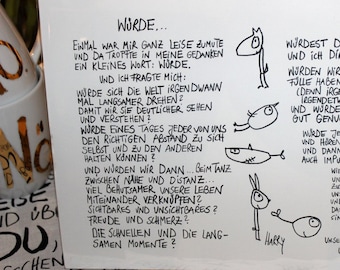 WÜRDE...
EINMAL WAR MIR GANZ LEISE ZUMUTE
UND DA TROPFTE IN MEINE GEDANKEN
EIN KLEINES WORT: WÜRDE.
UND ICH FRAGTE MICH:
WÜRDE SICH DIE WELT IRGENDWANN
MAL LANGSAMER DREHEN?
DAMIT WIR SIE DEUTLICHER SEHEN
UND VERSTEHEN?
WÜRDE EINES TAGES JEDER VON UNS
DEN RICHTIGEN ABSTAND ZU SICH
SELBST UND ZU DEN ANDEREN
HALTEN KÖNNEN?
UND WÜRDEN WIR DANN... BEIM TANZ
ZWISCHEN NÄHE UND DISTANZ...
VIEL BEHUTSAMER UNSERE LEBEN
MITEINANDER VERKNÜPFEN?
SICHTBARES UND UNSICHTBARES?
FREUDE UND SCHMERZ?
DIE SCHNELLEN UND DIE LANG-
SAMEN MOMENTE?
HARRY
WÜRDEST D
UND ICH DI
WÜRDEN WIR
FÜLLE HABEN
(DENN IRGE
IRGENDET
UND WÜRDE
GUT GENU
WÜRDE JE
UND HÖREN
UND DANN
AUCH IMPU
UNSE
O.
NÖ
EISE
UND ÜB
DU,
SCHEN